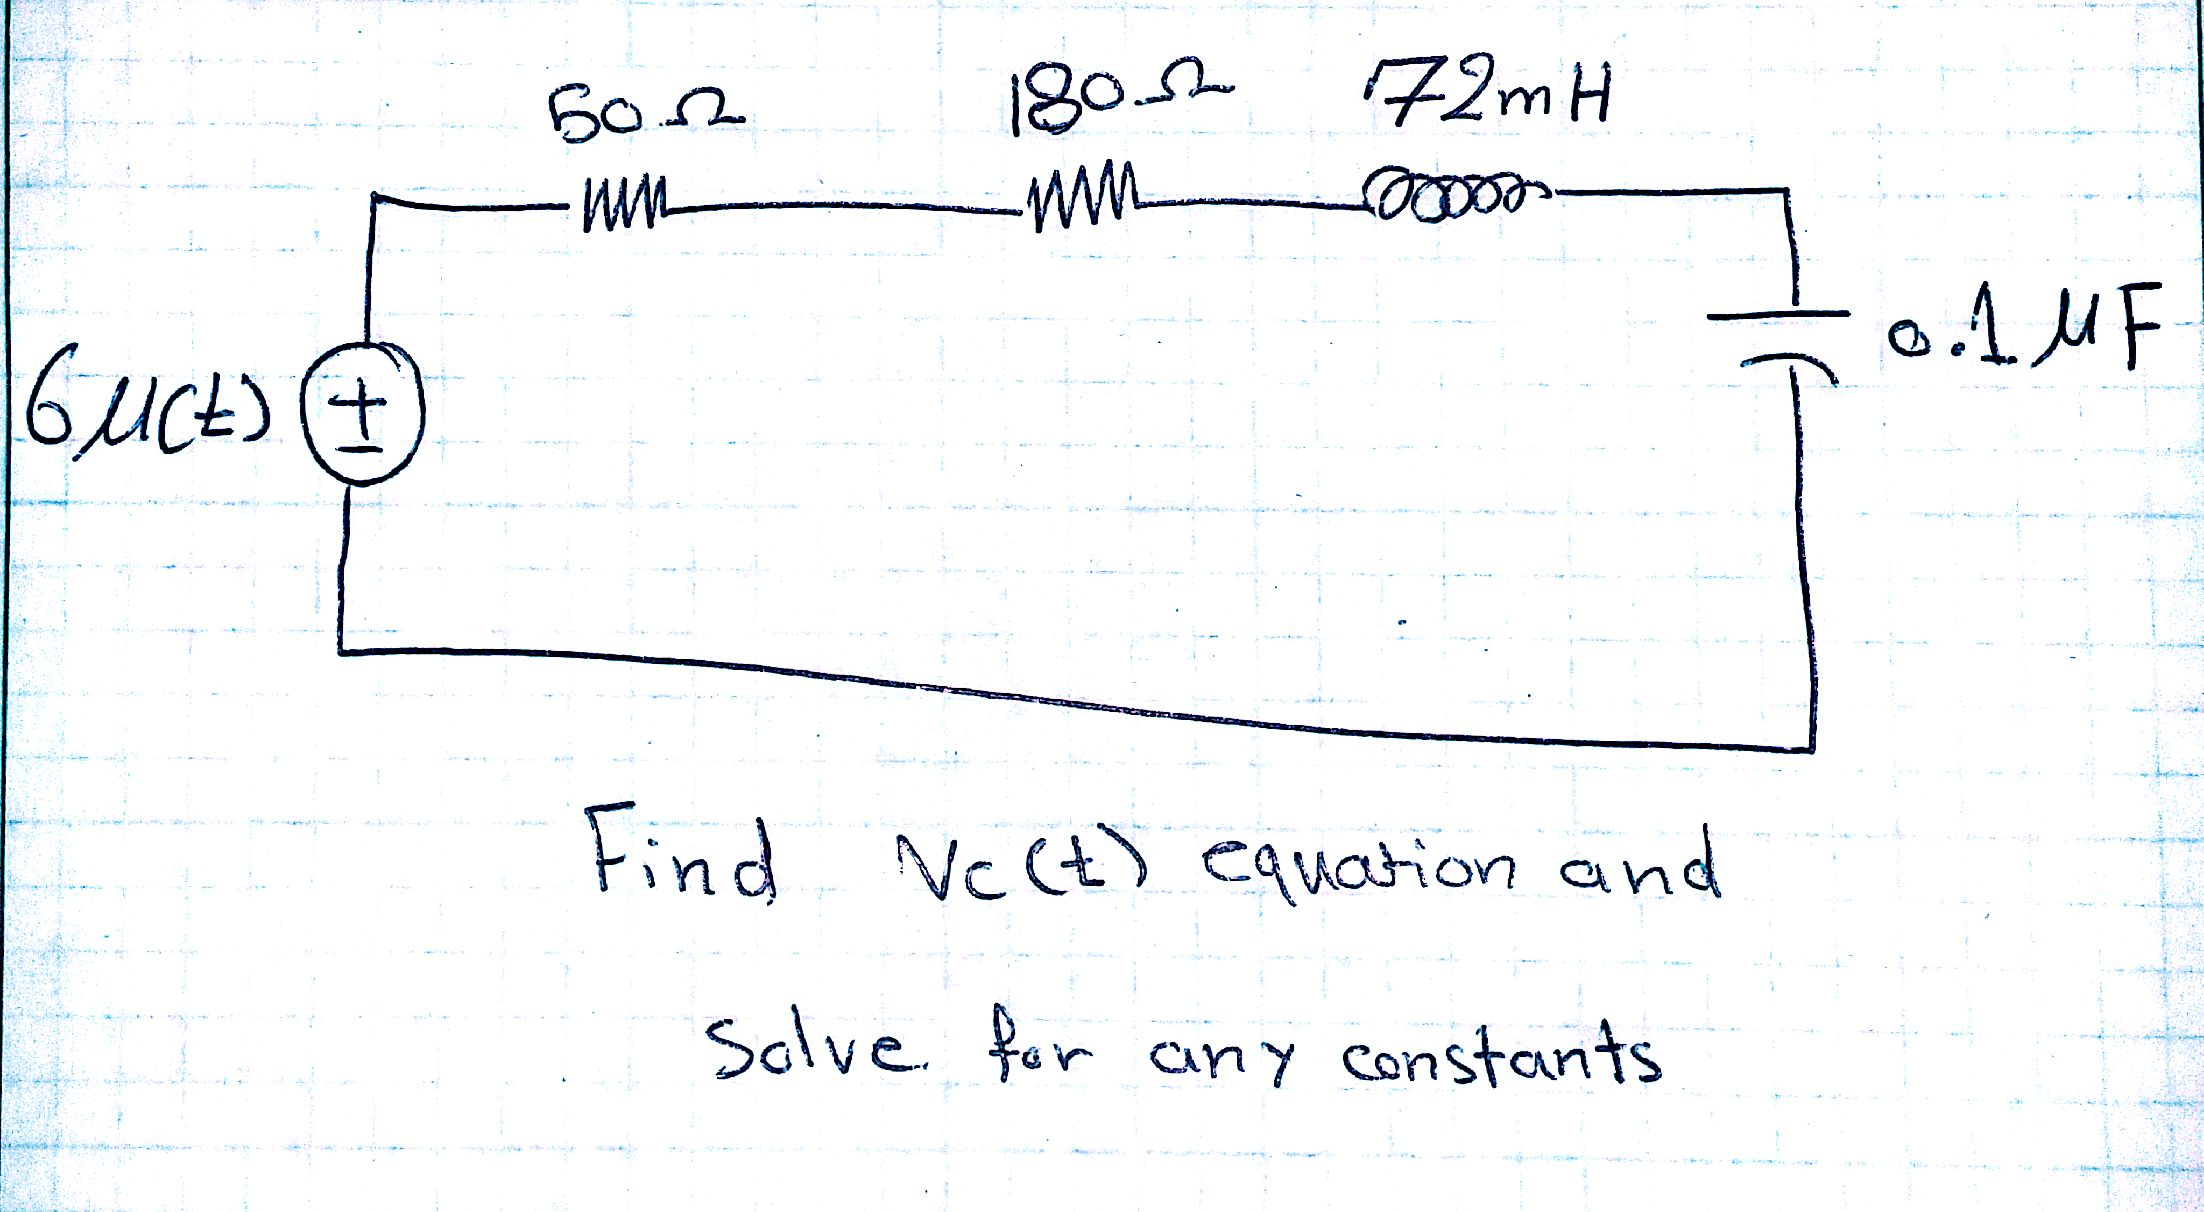 50Ω 180Ω 72mH
6u(t) + −
0.1 μF
Find Vc(t) equation and
Solve for any constants